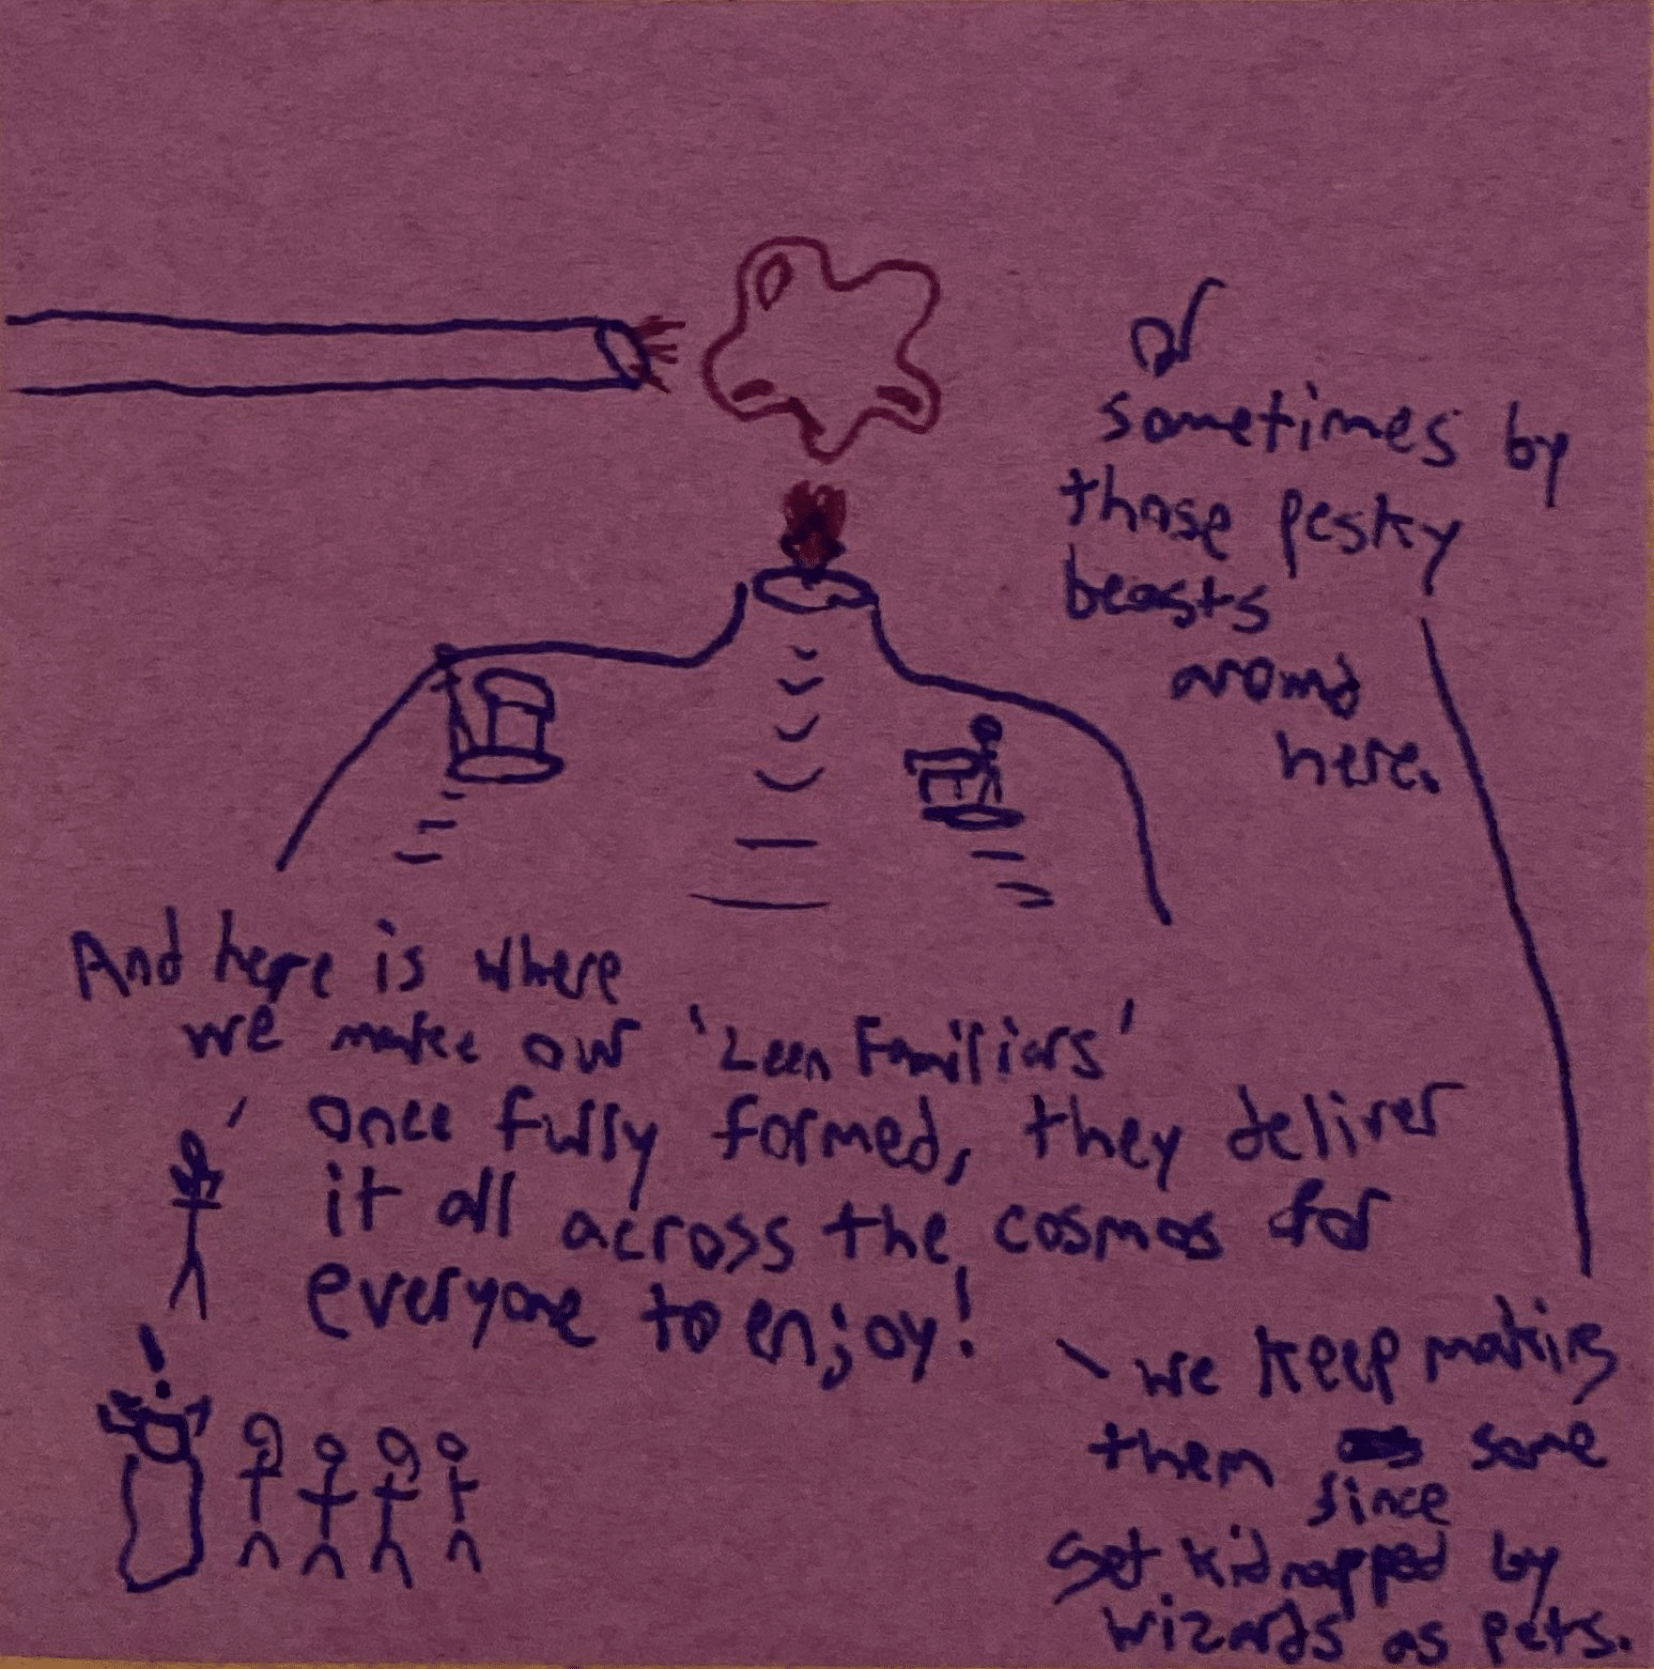 And here is where
we make our 'Leen Familiars'
once fully formed, they deliver
it all across the cosmos for
everyone to enjoy!
!
we keep making
them since some
get kidnapped by
wizards as pets.
or
sometimes by
those pesky
beasts
around
here.